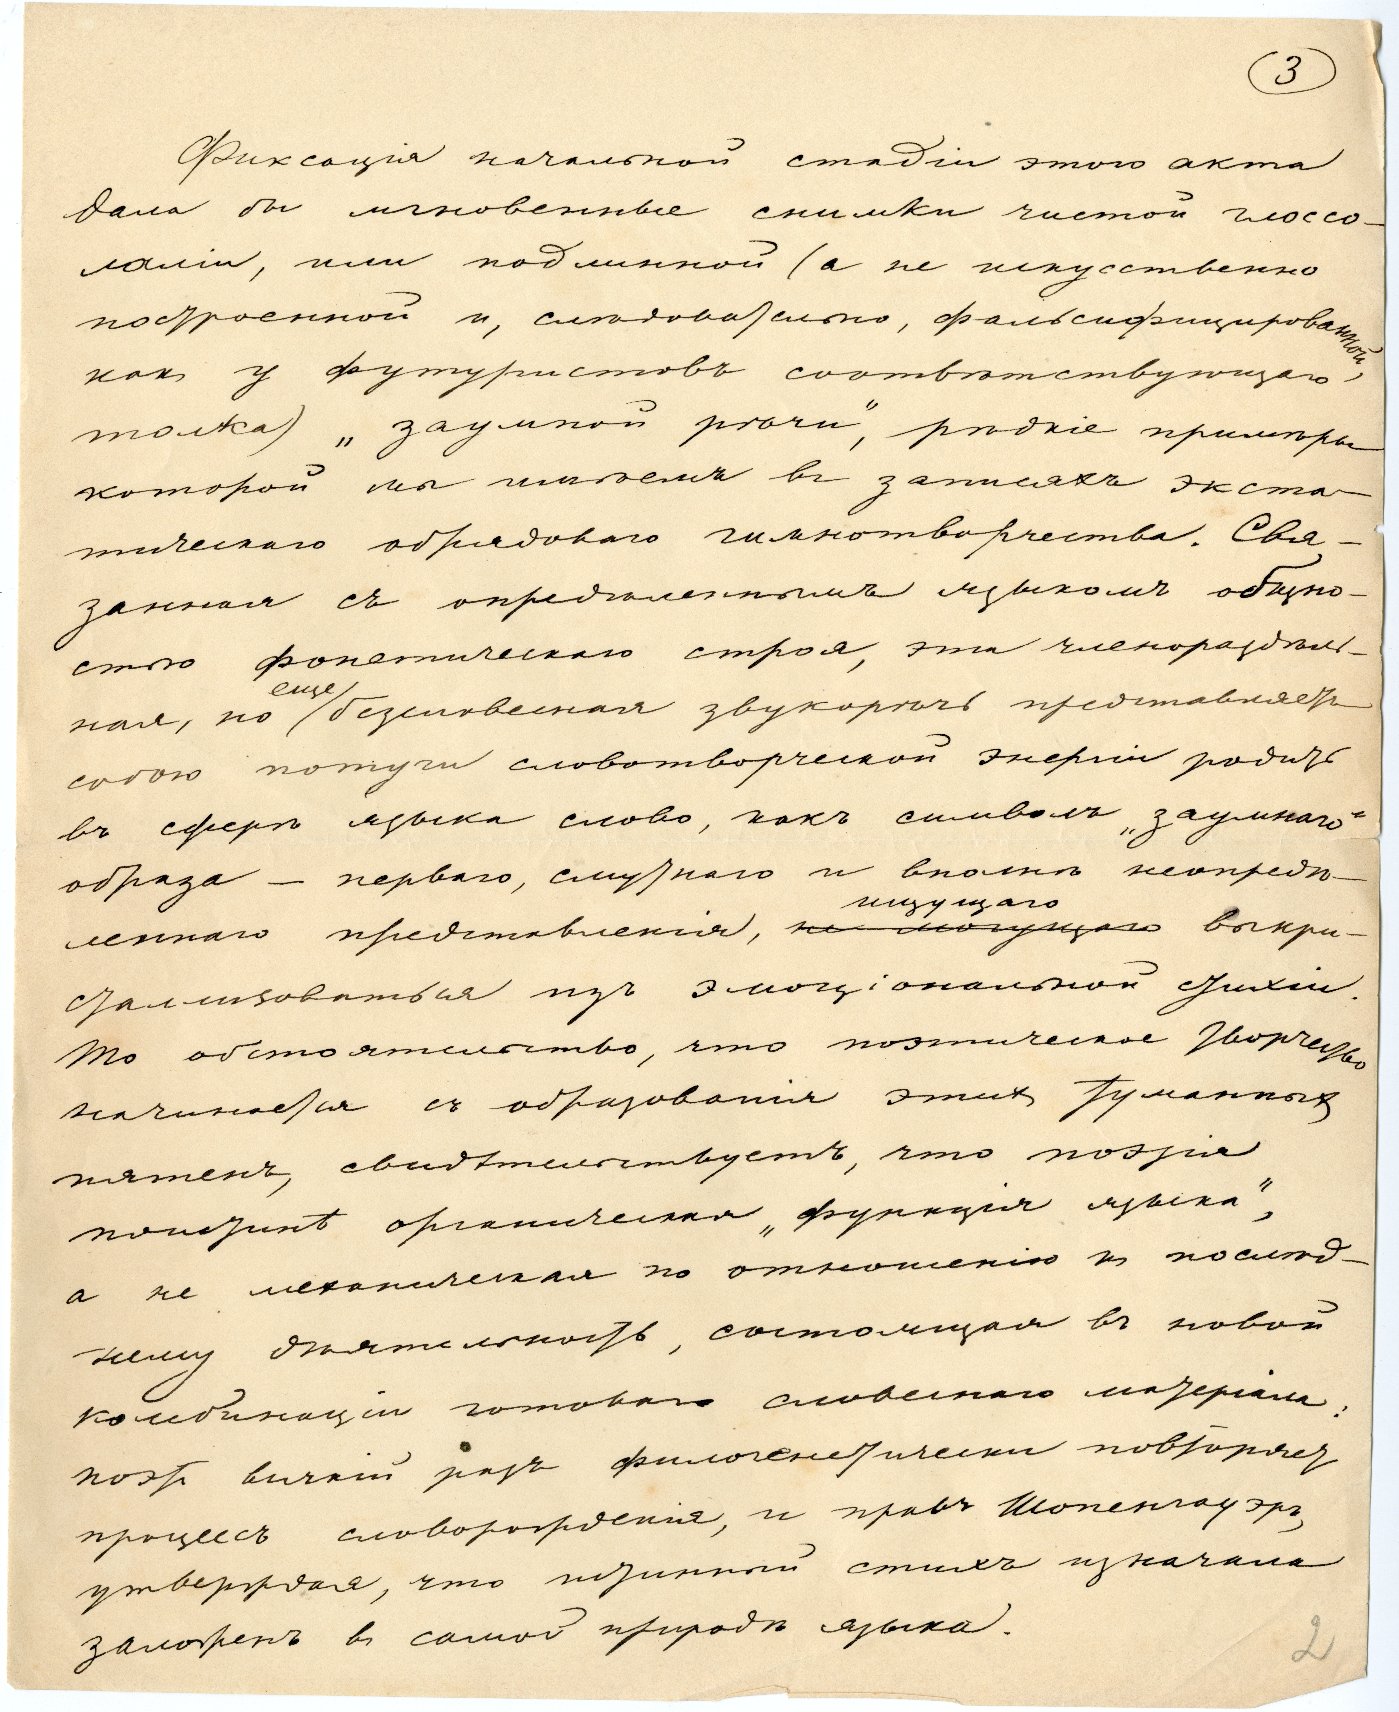 3
Фиксація начальной стадіи этого акта
дала бы мгновенные снимки чистой глоссо-
лаліи, или подлинной (а не искусственно
построенной и, слѣдовательно, фальсифицированной,
какъ у футуристовъ соотвѣтствующаго
толка) „заумной рѣчи“, рѣдкіе примѣры
которой мы имѣемъ въ записяхъ экста-
тическаго обрядоваго гимнотворчества. Свя-
занная съ опредѣленнымъ языкомъ общно-
стью фонетическаго строя, эта членораздѣль-
ная, но еще безсловесная звукорѣчь представляетъ
собою потуги словотворческой энергіи родить
въ сферѣ языка слово, какъ символъ „заумнаго“
образа — перваго, смутнаго и вполнѣ неопредѣ-
леннаго представленія, не могущаго ищущаго выкри-
сталлизоваться изъ эмоціональной стихіи.
То обстоятельство, что поэтическое творчество
начинается съ образованія этихъ туманныхъ
пятенъ, свидѣтельствуетъ, что поэзія
поистинѣ органическая „функція языка“,
а не механическая по отношенію къ послѣд-
нему дѣятельность, состоящая въ новой
комбинаціи готоваго словеснаго матеріала:
поэтъ всякій разъ филогенетически повторяетъ
процессъ словорожденія, и правъ Шопенгауэръ,
утверждая, что истинный стихъ изначала
заложенъ въ самой природѣ языка.
2